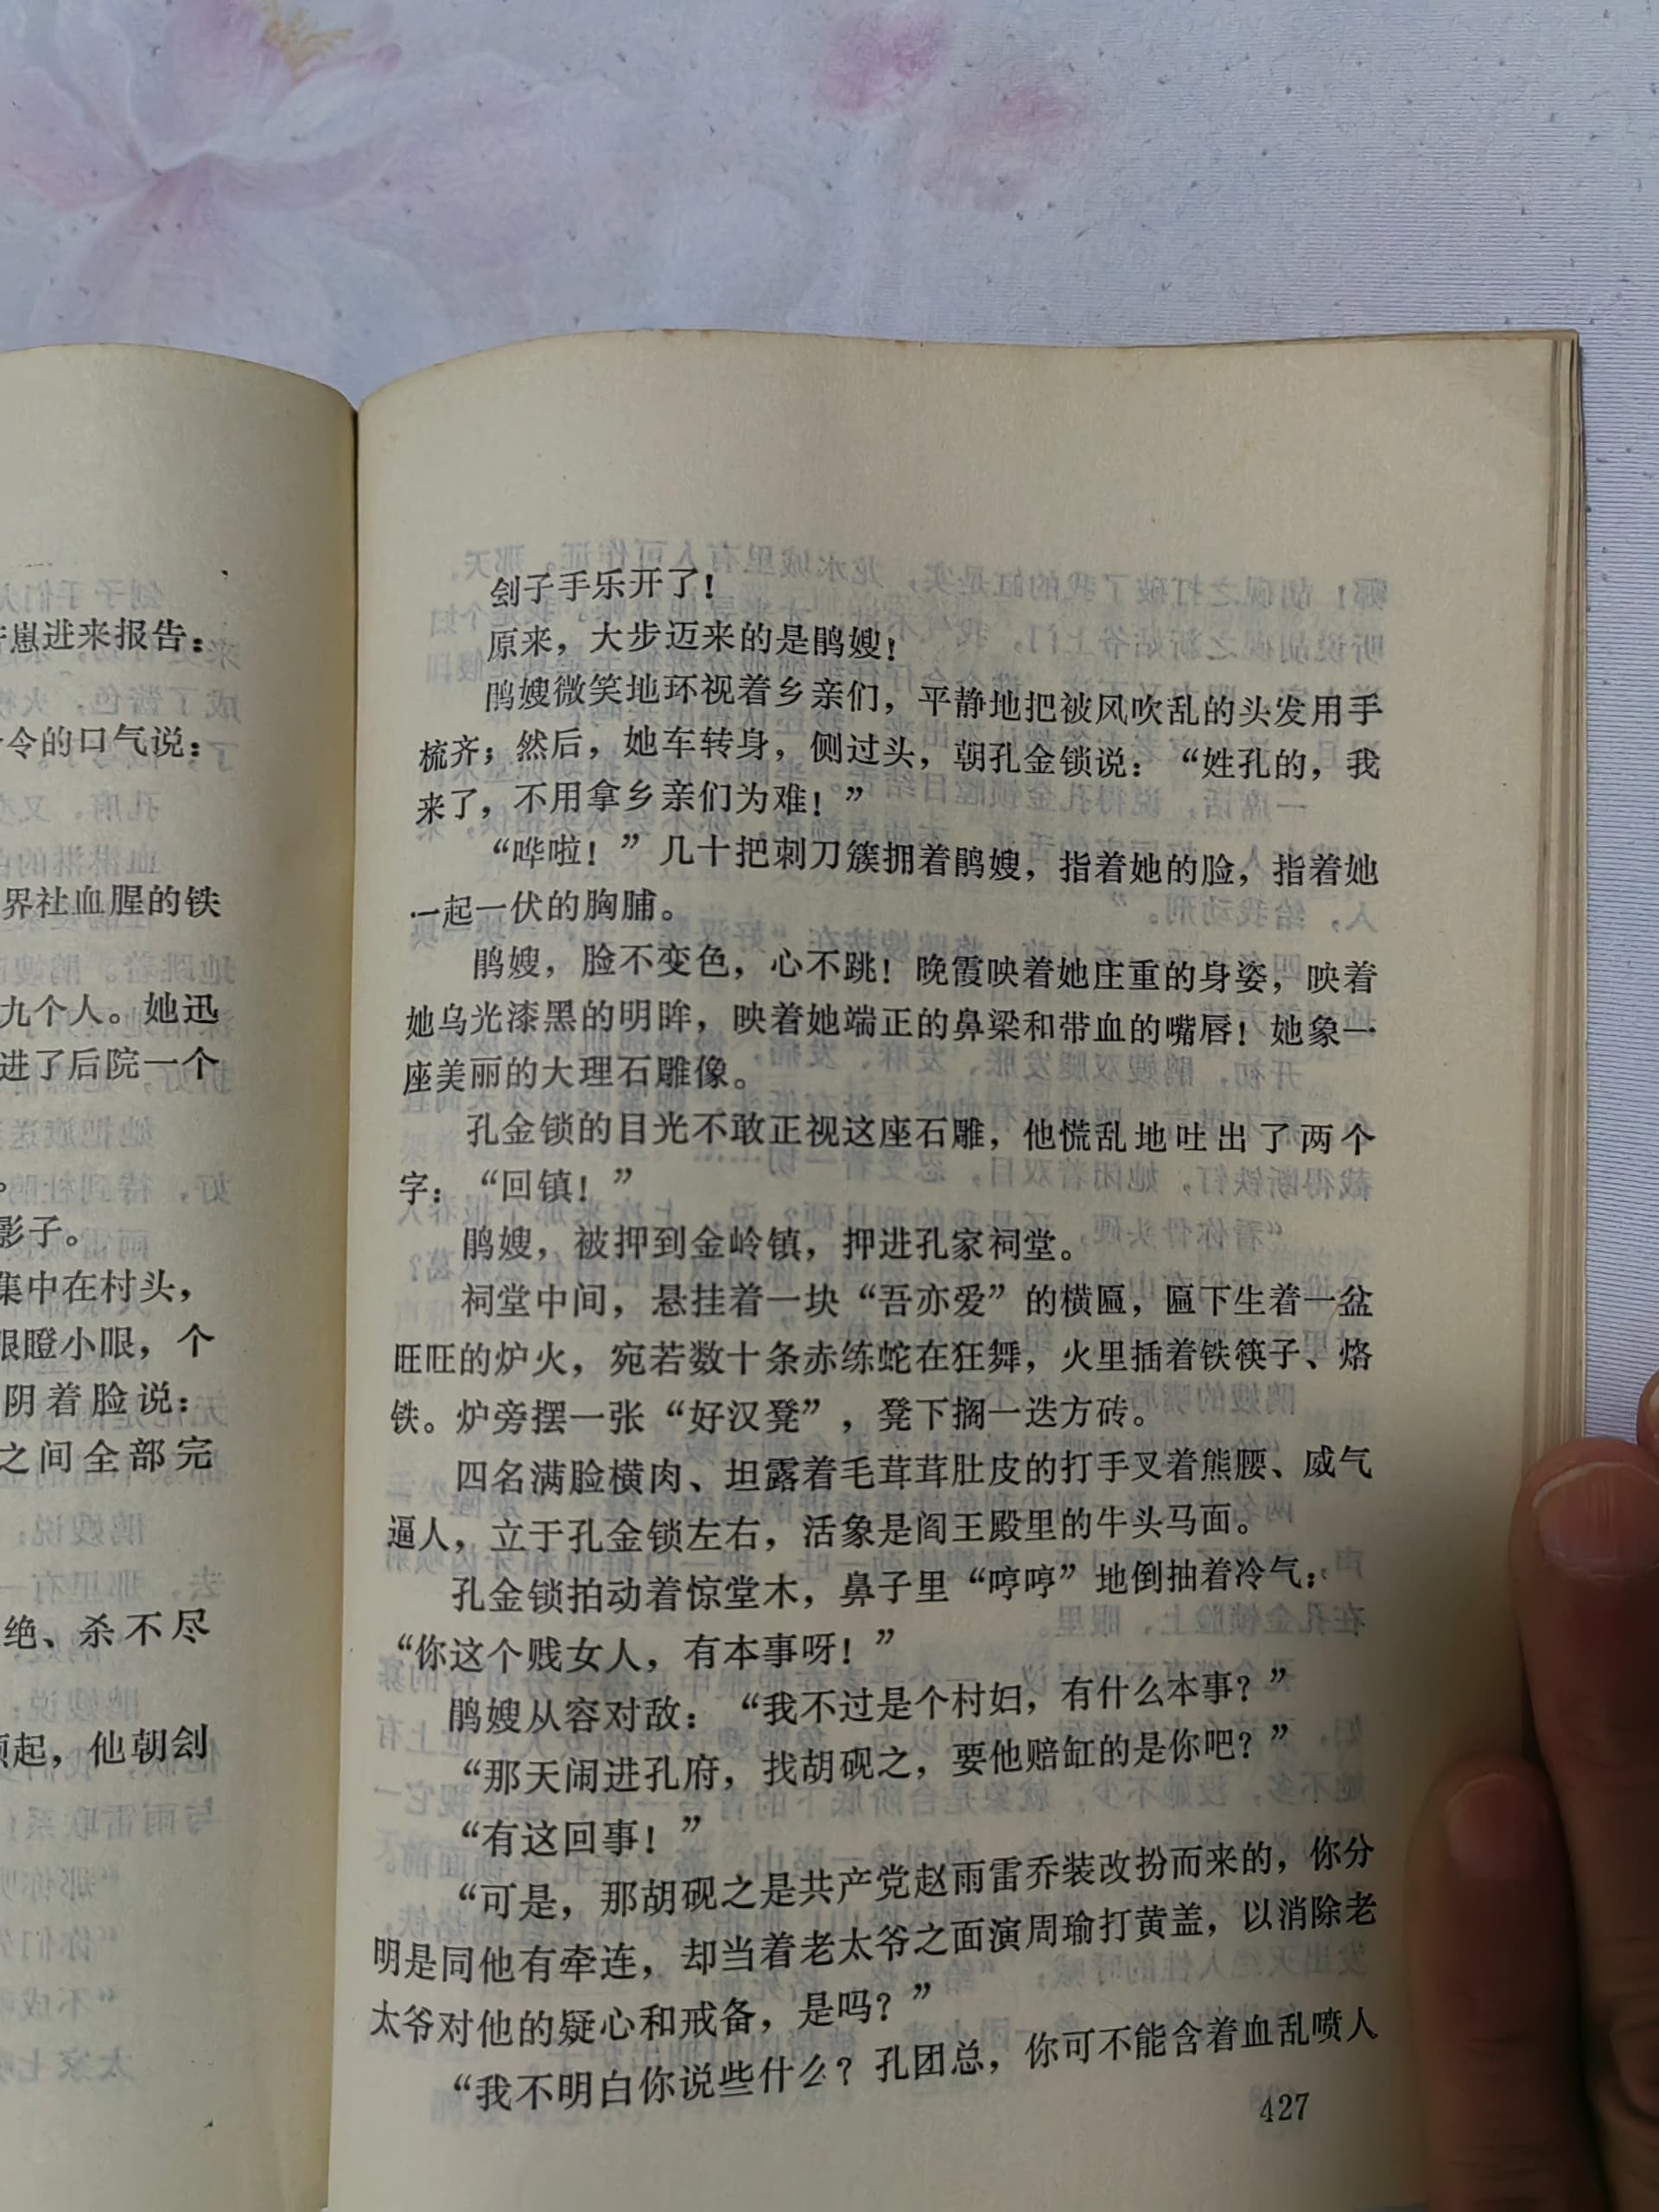 崽进来报告：
令的口气说：
界社血腥的铁
九个人。她迅
进了后院一个
影子。
集中在村头，
眼瞪小眼，个
阴着脸说：
之间全部完
绝、杀不尽
起，他朝刽
刽子手乐开了！
原来，大步迈来的是鹃嫂！
鹃嫂微笑地环视着乡亲们，平静地把被风吹乱的头发用手
梳齐；然后，她车转身，侧过头，朝孔金锁说：“姓孔的，我
来了，不用拿乡亲们为难！”
“哗啦！”几十把刺刀簇拥着鹃嫂，指着她的脸，指着她
一起一伏的胸脯。
鹃嫂，脸不变色，心不跳！晚霞映着她庄重的身姿，映着
她乌光漆黑的明眸，映着她端正的鼻梁和带血的嘴唇！她象一
座美丽的大理石雕像。
孔金锁的目光不敢正视这座石雕，他慌乱地吐出了两个
字：“回镇！”
鹃嫂，被押到金岭镇，押进孔家祠堂。
祠堂中间，悬挂着一块“吾亦爱”的横匾，匾下生着一盆
旺旺的炉火，宛若数十条赤练蛇在狂舞，火里插着铁筷子、烙
铁。炉旁摆一张“好汉凳”，凳下搁一迭方砖。
四名满脸横肉、坦露着毛茸茸肚皮的打手叉着熊腰、威气
逼人，立于孔金锁左右，活象是阎王殿里的牛头马面。
孔金锁拍动着惊堂木，鼻子里“哼哼”地倒抽着冷气：
“你这个贱女人，有本事呀！”
鹃嫂从容对敌：“我不过是个村妇，有什么本事？”
“那天闹进孔府，找胡砚之，要他赔缸的是你吧？”
“有这回事！”
“可是，那胡砚之是共产党赵雨雷乔装改扮而来的，你分
明是同他有牵连，却当着老太爷之面演周瑜打黄盖，以消除老
太爷对他的疑心和戒备，是吗？”
“我不明白你说些什么？孔团总，你可不能含着血乱喷人
427